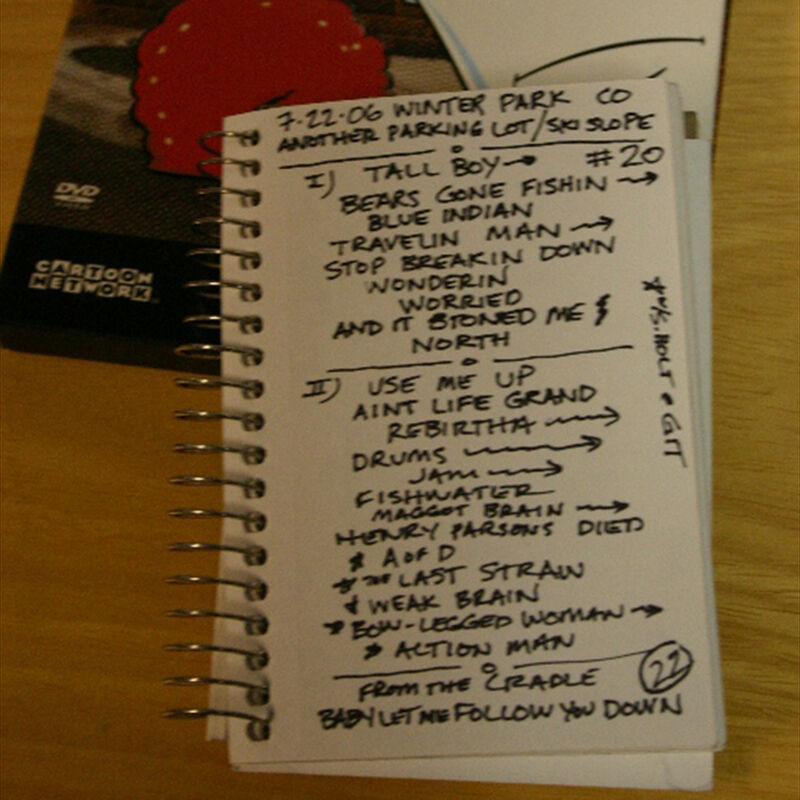 7.22.06 WINTER PARK CO
ANOTHER PARKING LOT/SKI SLOPE
I) TALL BOY → #20
BEARS GONE FISHIN →
BLUE INDIAN
TRAVELIN MAN →
STOP BREAKIN DOWN
WONDERIN
WORRIED
AND IT STONED ME
NORTH
II) USE ME UP
AINT LIFE GRAND
REBIRTHA →
DRUMS →
JAM →
FISHWATER
MAGGOT BRAIN →
HENRY PARSONS DIED
* A OF D
* THE LAST STRAW
* WEAK BRAIN
* BOW-LEGGED WOMAN →
* ACTION MAN
FROM THE CRADLE 22
BABY LET ME FOLLOW YOU DOWN
* W/S. HOLT • GIT
DVD
CARTOON
NETWORK